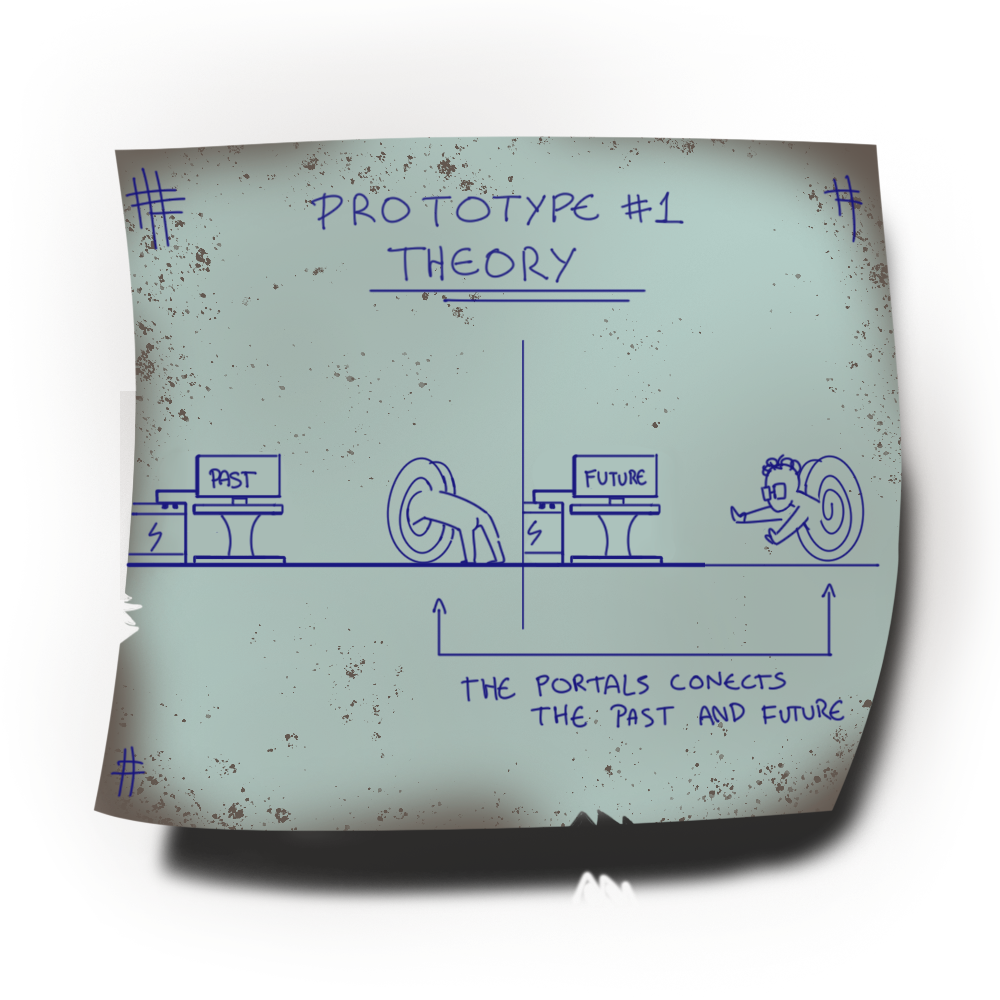 PROTOTYPE #1
THEORY
PAST
FUTURE
THE PORTALS CONECTS
THE PAST AND FUTURE